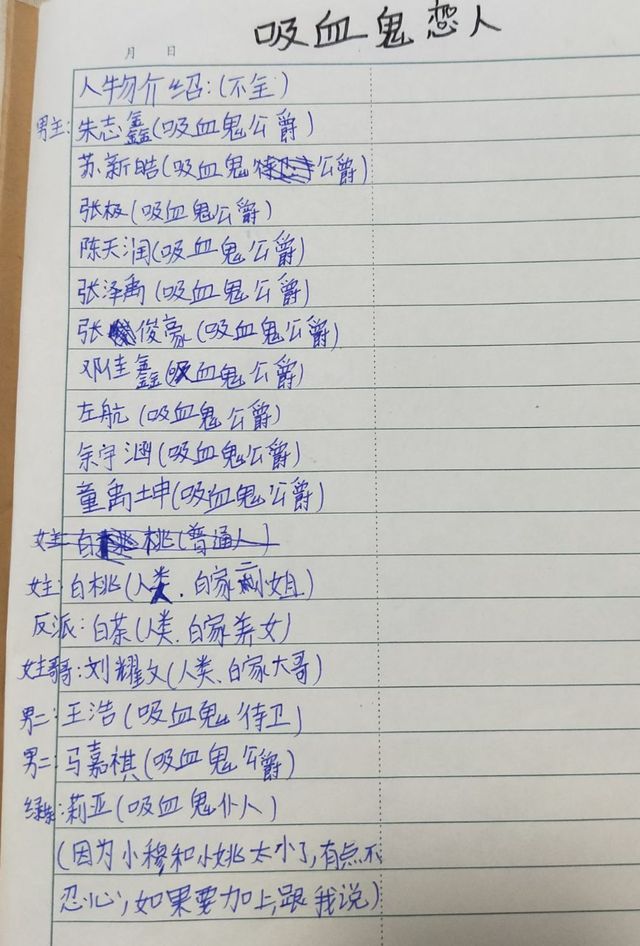 吸血鬼恋人
月 日
人物介绍:(不全)
男主:朱志鑫(吸血鬼公爵)
苏新皓(吸血鬼公爵)
张极(吸血鬼公爵)
陈天润(吸血鬼公爵)
张泽禹(吸血鬼公爵)
张俊豪(吸血鬼公爵)
邓佳鑫(吸血鬼公爵)
左航(吸血鬼公爵)
余宇涵(吸血鬼公爵)
童禹坤(吸血鬼公爵)
女主白桃(普通人)
女主:白桃(人类、白家二小姐)
反派:白茶(人类、白家养女)
女主哥哥:刘耀文(人类、白家大哥)
男二:王浩(吸血鬼侍卫)
男二:马嘉祺(吸血鬼公爵)
绿茶:莉亚(吸血鬼仆人)
(因为小穆和小姚太小了,有点不
忍心,如果要加上,跟我说)